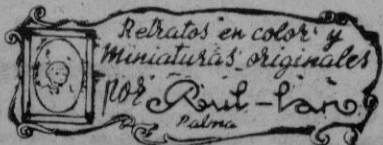 Retratos en color y
miniaturas originales
por Raul-Van
Palma